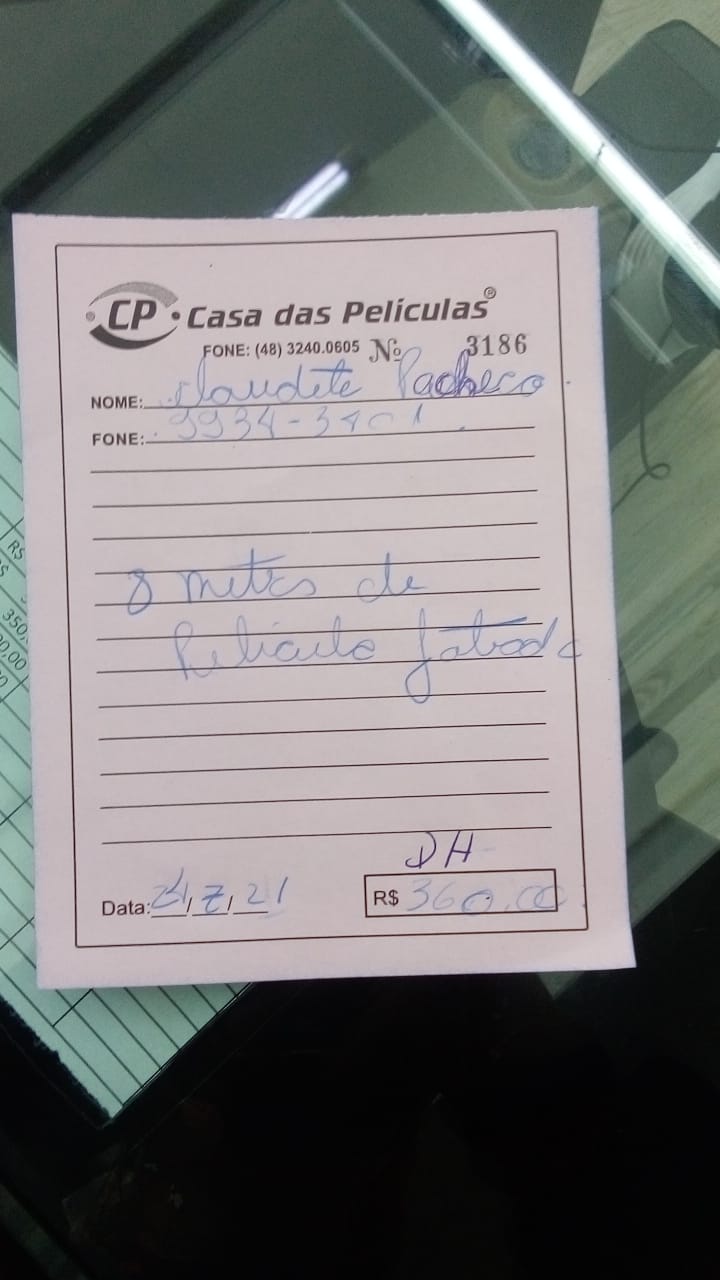 CP Casa das Películas®
FONE: (48) 3240.0605 Nº 3186
NOME: Claudete Pacheco
FONE: 9934-3401
8 metros de
Pelicula Jateada
DH
Data: 24/7/21 R$ 360,00
R$
350,